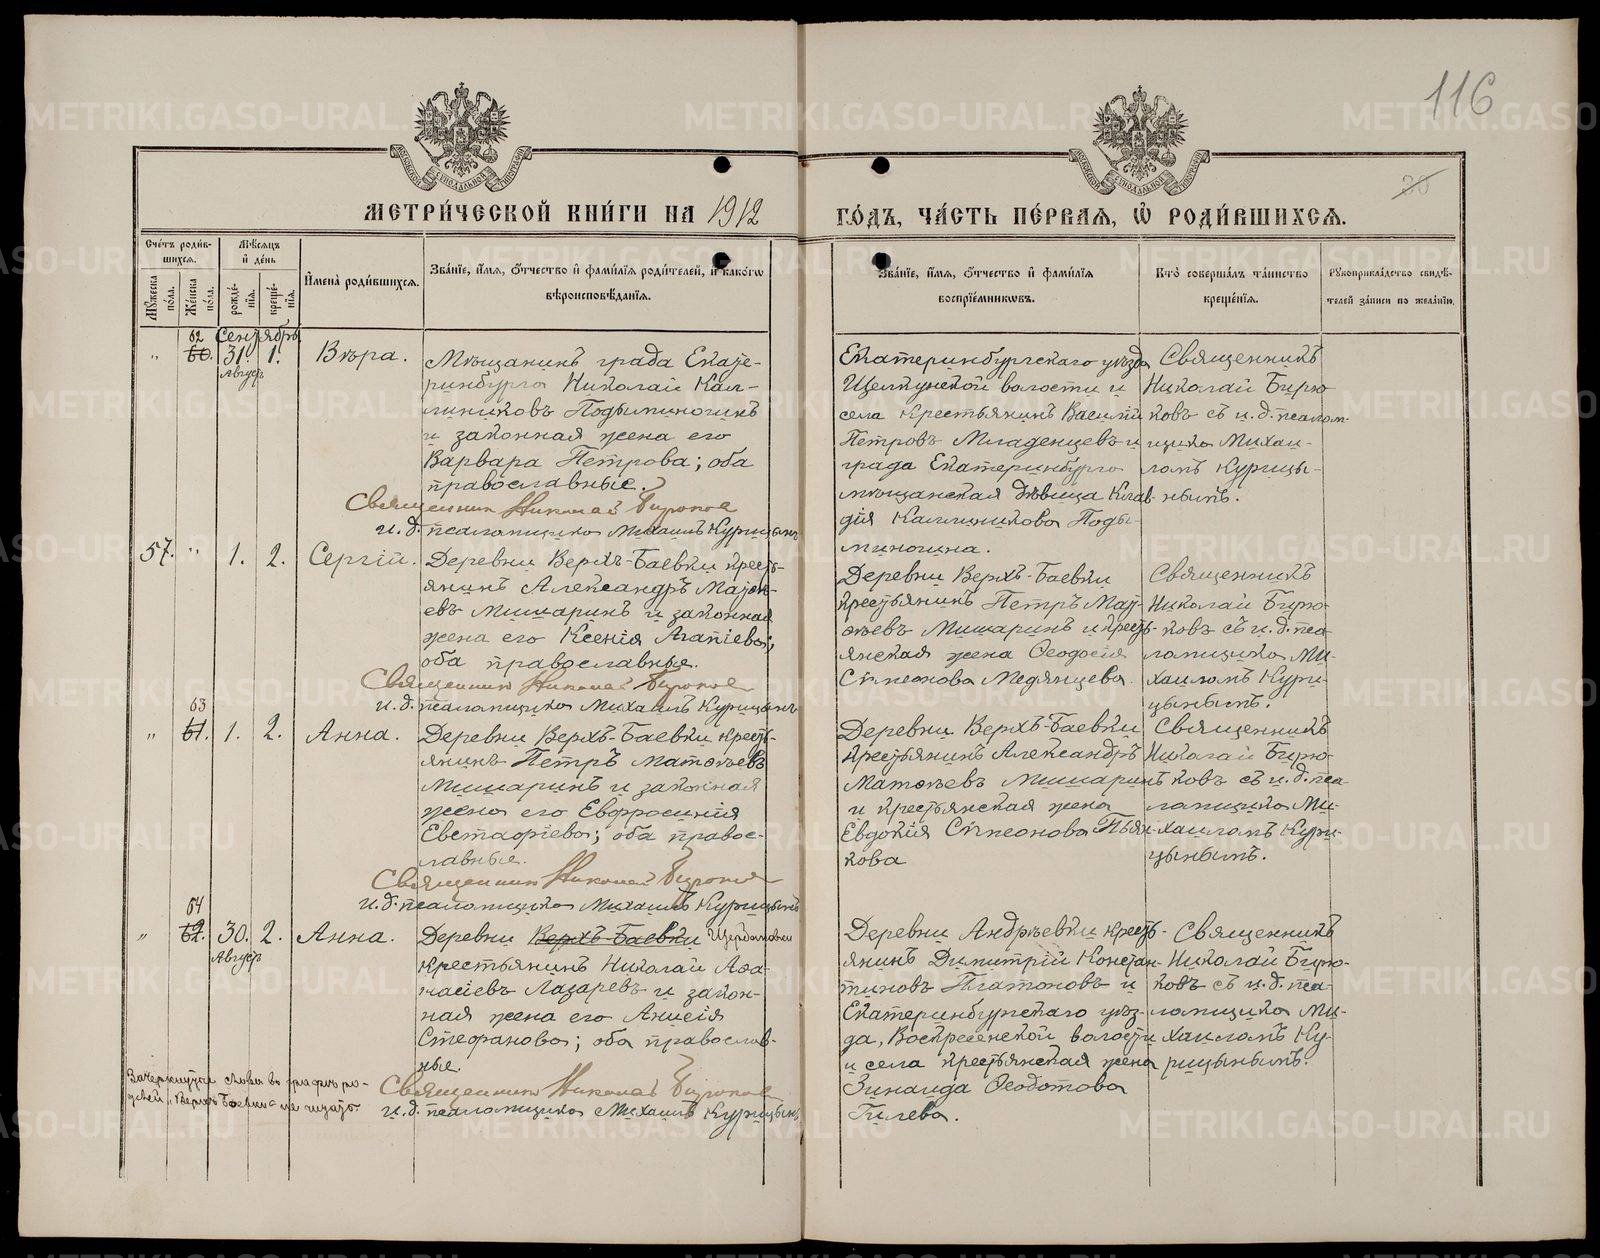 116
20
МЕТРИ́ЧЕСКОЙ КНИ́ГИ НА 1912
ГО́ДЪ, ЧА́СТЬ ПЕ́РВАЯ, Ѡ҆ РОДИ́ВШИХСЯ.
Сче́тъ роди́вшихся.
Мꙋ́жеска по́ла.
Же́нска по́ла.
Мѣ́сяцъ и҆ де́нь
рожде́нїѧ.
креще́нїѧ.
И҆мена̀ роди́вшихся.
Зва́нїе, и҆́мя, ѻ҆́тчество и҆ фами́лїя роди́телей, и҆ како́гѡ
вѣроисповѣ́данїя.
Зва́нїе, и҆́мя, ѻ҆́тчество и҆ фами́лїя
воспрїе́мникѡвъ.
Кто̀ соверша́лъ та́инство
креще́нїя.
Рꙋкоприкла́дство свидѣ́-
телей за́писи по жела́нїю.
Сентябрь
„ 62 60. 31. Августъ 1. Вѣра.
Мѣщанинъ града Екате-
ринбурга Николай Кал-
линиковъ Подыминогинъ
и законная жена его
Варвара Петрова; оба
православные.
Священникъ Николай Бирюков
и. д. псаломщика Михаилъ Курицынъ
Екатеринбургскаго уѣзда
Щелкунской волости и
села крестьянинъ Василій
Петровъ Младенцевъ и
града Екатеринбурга
мѣщанская дѣвица Клав-
дія Каллиникова Поды-
миногина.
Священникъ
Николай Бирю-
ковъ съ и. д. псалом-
щика Михаи-
ломъ Курицы-
нымъ.
57. „ 1. 2. Сергій.
Деревни Верхъ-Боевки кресть-
янинъ Александръ Матѳе-
евъ Мишаринъ и законная
жена его Ксенія Агапіева;
оба православные.
Священникъ Николай Бирюков
и. д. псаломщика Михаилъ Курицынъ
Деревни Верхъ-Боевки
крестьянинъ Петръ Мат-
ѳѣевъ Мишаринъ и кресть-
янская жена Ѳеодосія
Сѵмеонова Медянцева.
Священникъ
Николай Бирю-
ковъ съ и. д. пса-
ломщика Ми-
хаиломъ Кури-
цынымъ.
„ 63 61. 1. 2. Анна.
Деревни Верхъ-Боевки кресть-
янинъ Петръ Матѳѣевъ
Мишаринъ и законная
жена его Евфросинія
Евстафіева; оба правос-
лавные.
Священникъ Николай Бирюков
и. д. псаломщика Михаилъ Курицынъ
Деревни Верхъ-Боевки
крестьянинъ Александръ
Матѳѣевъ Мишаринъ
и крестьянская жена
Евдокія Сѵмеонова Пьян-
кова
Священникъ
Николай Бирю-
ковъ съ и. д. пса-
ломщика Ми-
хаиломъ Кури-
цынымъ.
„ 64 62. 30. Августъ 2. Анна.
Деревни Верхъ-Боевки Щербаковки
крестьянинъ Николай Аѳа-
насіевъ Лазаревъ и закон-
ная жена его Анисія
Стефанова; оба православ-
ные.
Священникъ Николай Бирюков
и. д. псаломщика Михаилъ Курицынъ
Деревни Андрѣевки кресть-
янинъ Димитрій Констан-
тиновъ Платоновъ и
Екатеринбургскаго уѣз-
да, Воскресенской волости
и села крестьянская жена
Зинаида Ѳеодотова
Гилева.
Священникъ
Николай Бирю-
ковъ съ и. д. пса-
ломщика Ми-
хаиломъ Ку-
рицынымъ.
Зачеркнутыя слова въ графѣ ро-
дителей „Верхъ Боевки“ не читать.